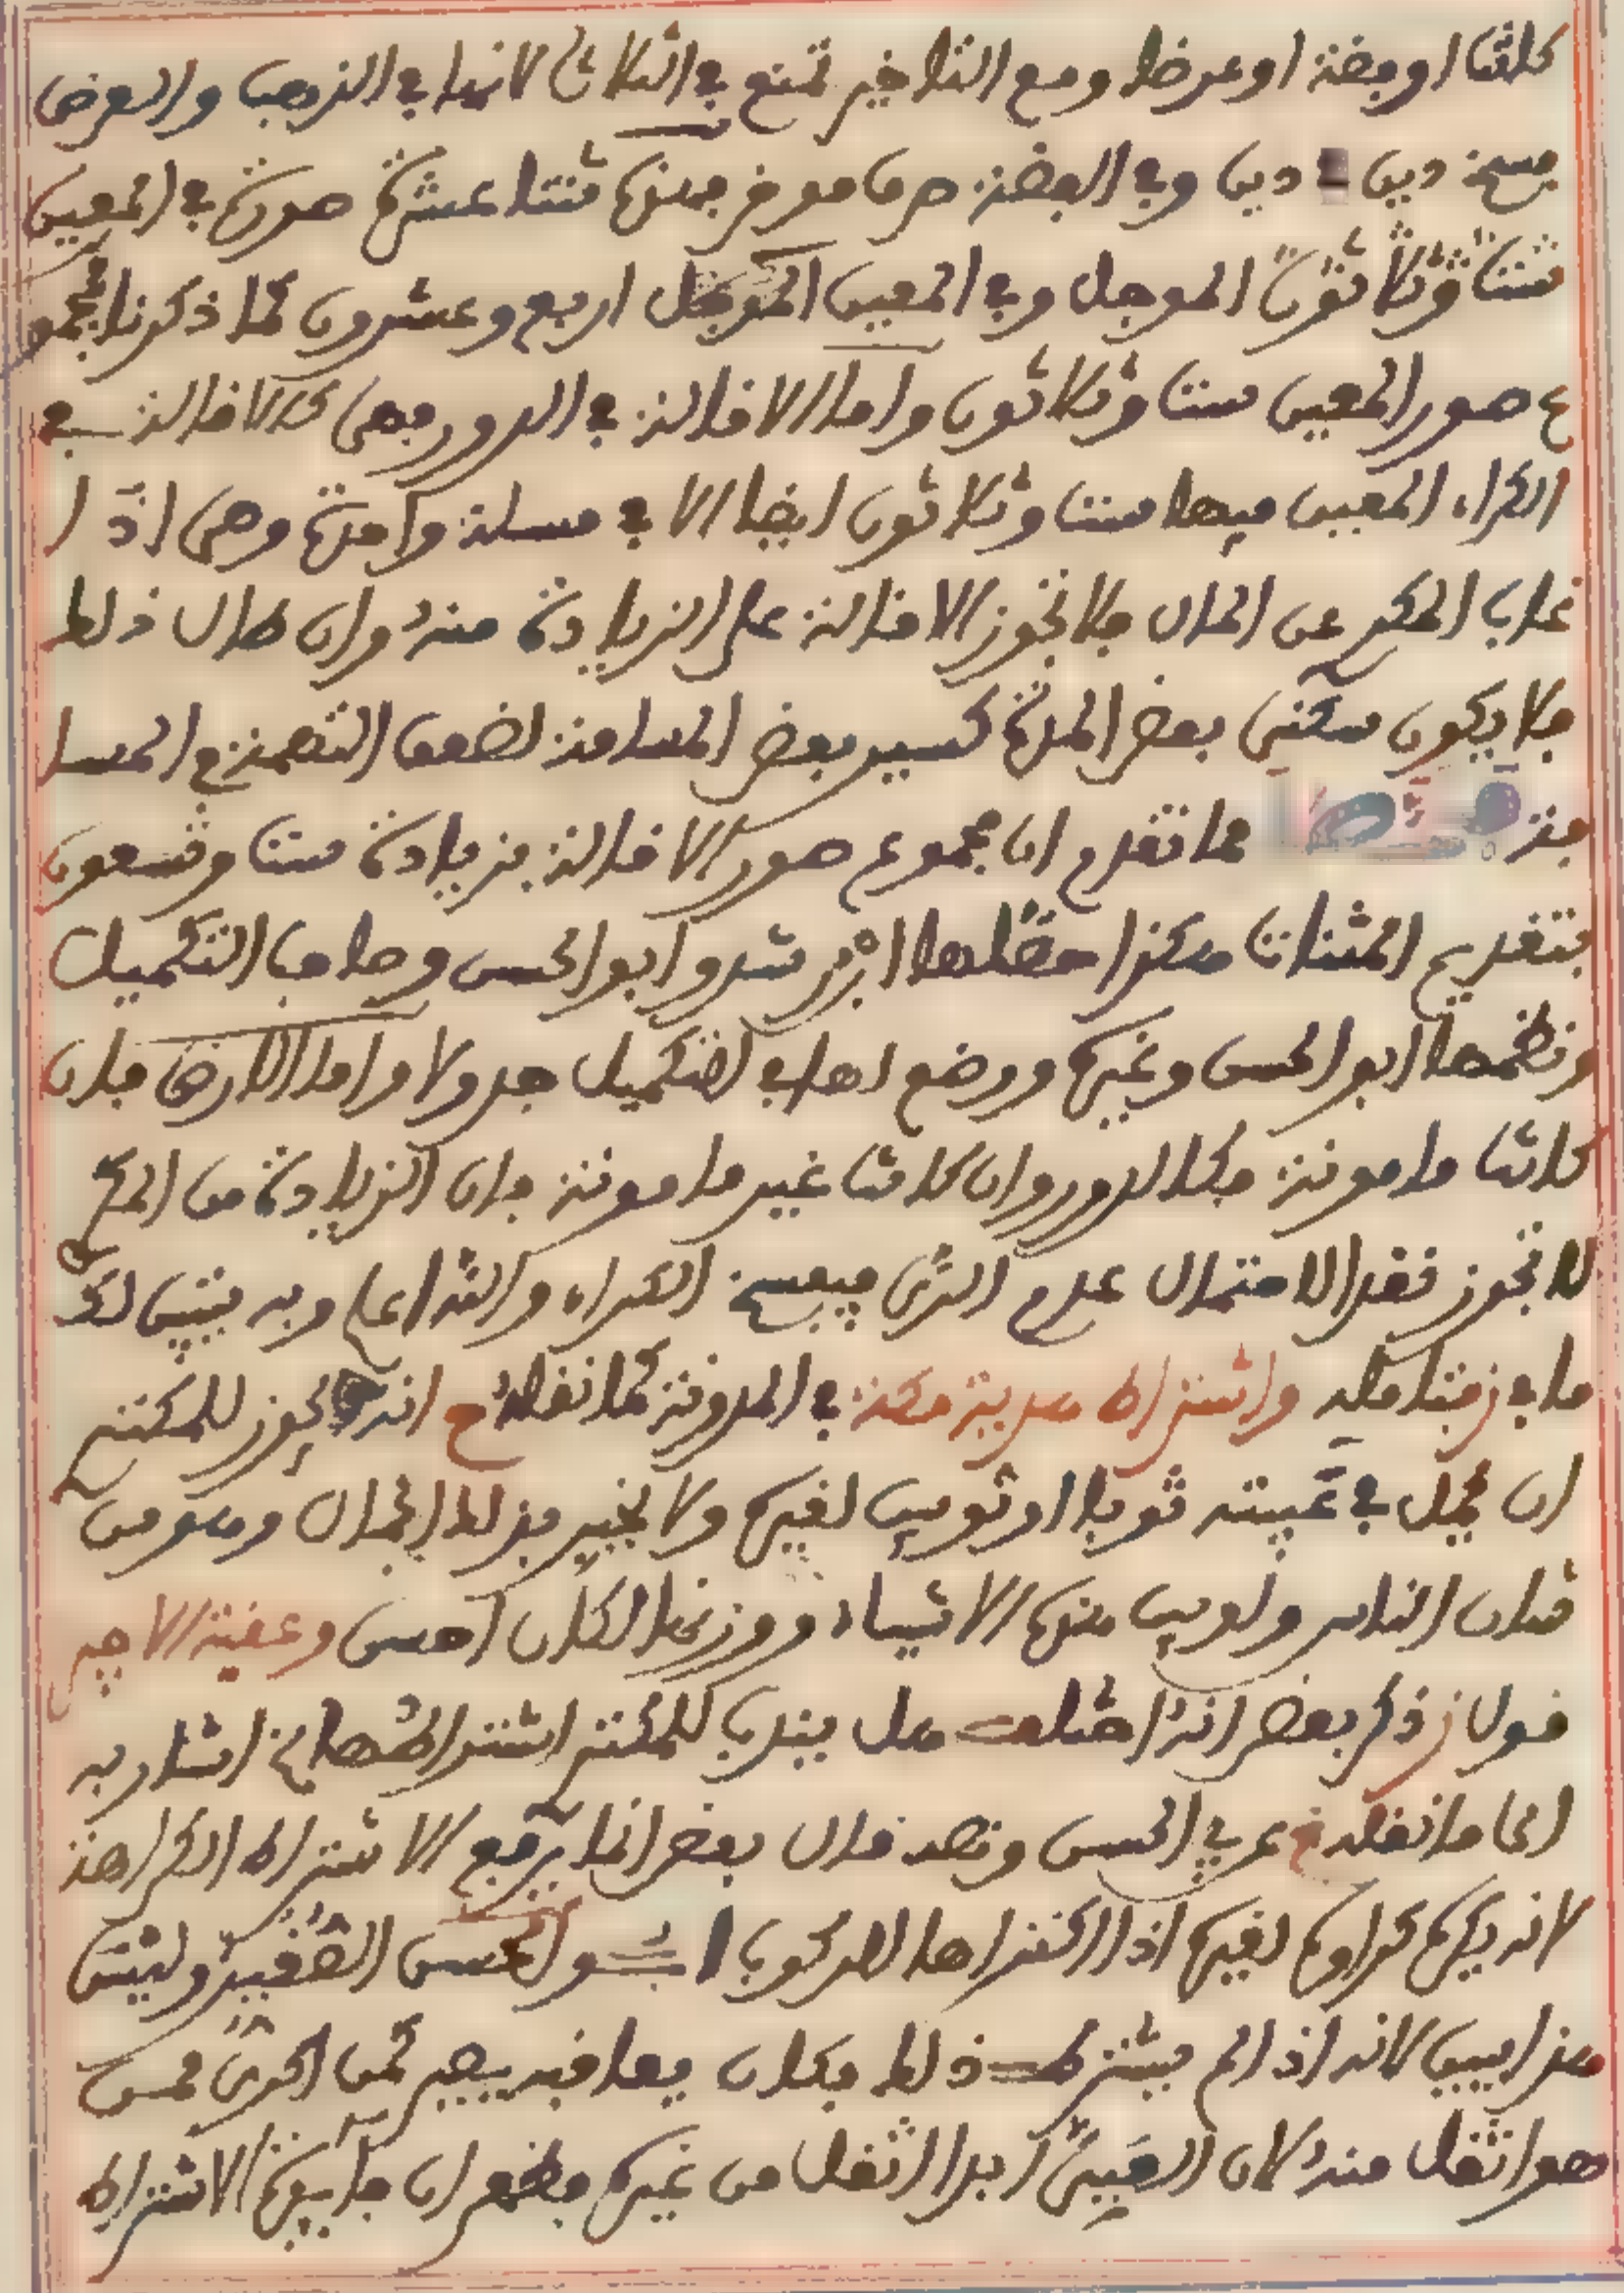 كانت او فضة او عرضا ومع التاخير تمنع في الثلاث لانها في الذهب والعرض
فسخ دين في دين وفي الفضة صرف موخر فهذه ثنتا عشرة صورة في المعين
ستة وثلاثون الموجل وفي المعين الموجل اربع وعشرون كما ذكرنا فمجمو
ع صور المعين ست وثلاثون واما الاقالة في الدور فهي كالاقالة في
الكراء المعين فيها ست وثلاثون ايضا الا في مسئلة واحدة وهي اذا
غاب المكري عن المال فلا تجوز الاقالة على الزيادة منه وان طال ذلك
فلا يكون سكنى بعض المدة كسير بعض المسافة لضعف التهمة في المسا
فة مما تقدم ان مجموع صور الاقالة بزيادة ست وتسعون
بتقديم المثناة هكذا حصلها ابن رشد وابو الحسن وصاحب التكميل
ونظمها ابو الحسن وغيره ووضع لها في التكميل جدولا واما الارض فان
كانت مامونة فكالدور وان كانت غير مامونة فان الزيادة من المكر
لا تجوز نقدا لاحتمال عدم الري فيفسخ الكراء والتداعي وبه يتبين لك
ما في ز فتامله واشتراط هدية مكة في المدونة كما نقله ح انه يجوز للمكتر
ان يحمل في غيبته ثوبا او ثوبين لغيره ولا يخبر بذلك الجمال وهو من
شان الناس ولو بين هذه الاشياء ووزنها لكان احسن وعقبة الاجير
قول ز ذكر بعض انه اختلف هل يندب للمكتر اشتراطها الخ اشار به
الى ما نقله عن ابي الحسن ونصه قال بعض انما يرفع الاشتراط الكراهة
لانه يكره كراوه لغيره اذا اكتراها للركوب ابو الحسن الصغير وليس
هذا ببين لانه اذا لم يشترط ذلك فكان يعاقبه يصير كمن اكرى ممن
هو اثقل منه لان العيي ابدا اثقل من غيره فظهر ان فايدة الاشتراط